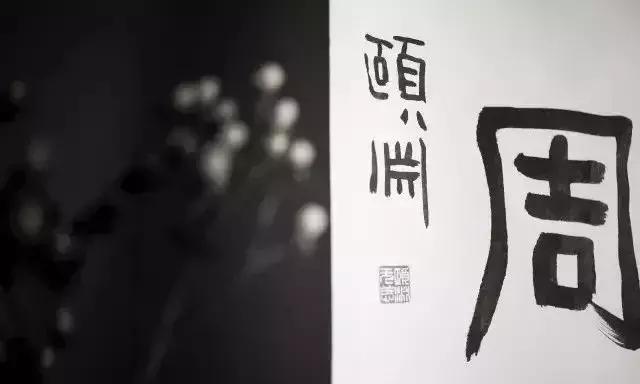 周
頤淵